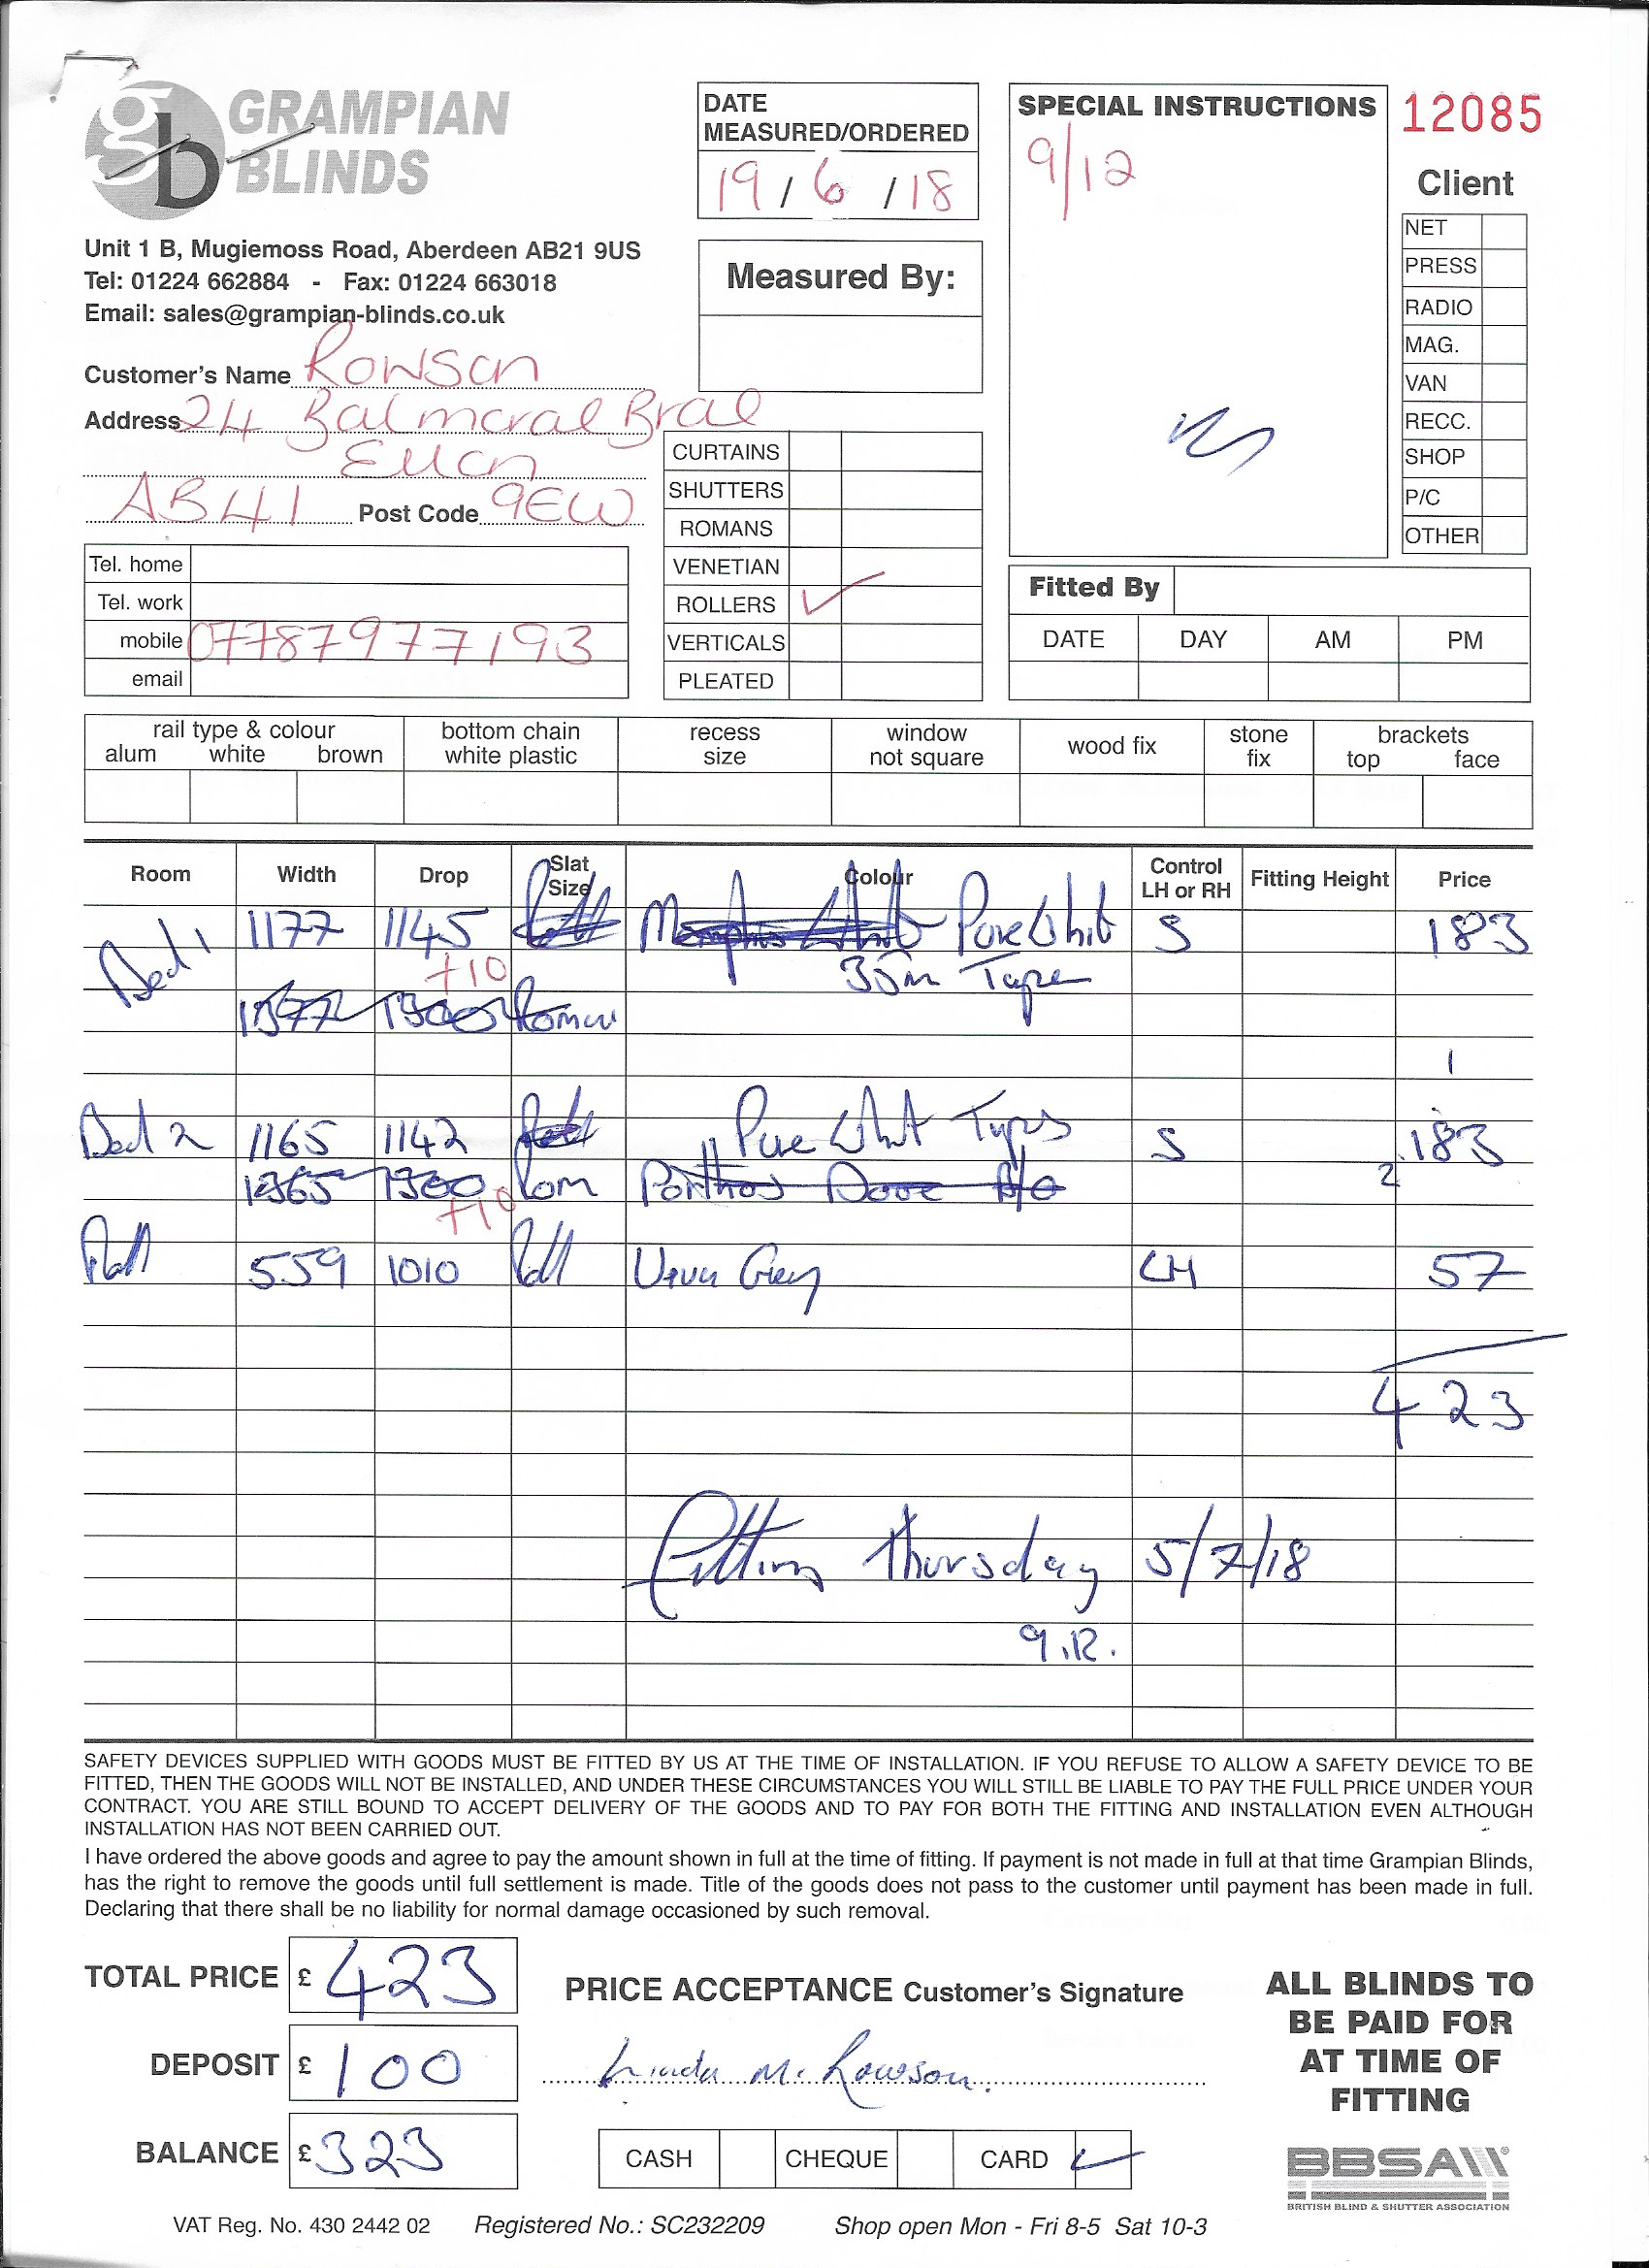 GRAMPIAN
BLINDS
Unit 1 B, Mugiemoss Road, Aberdeen AB21 9US
Tel: 01224 662884 - Fax: 01224 663018
Email: sales@grampian-blinds.co.uk
Customer's Name Rowson
Address 24 Balmoral Brae
Ellon
AB41 Post Code 9EW
Tel. home
Tel. work
mobile 07787977193
email
DATE
MEASURED/ORDERED
19/6/18
Measured By:
CURTAINS
SHUTTERS
ROMANS
VENETIAN
ROLLERS ✓
VERTICALS
PLEATED
SPECIAL INSTRUCTIONS
9/12
12085
Client
NET
PRESS
RADIO
MAG.
VAN
RECC.
SHOP
P/C
OTHER
Fitted By
DATE DAY AM PM
rail type & colour bottom chain recess window wood fix stone brackets
alum white brown white plastic size not square fix top face
Room Width Drop Slat Size Colour Control LH or RH Fitting Height Price
Bed 1 1177 1145 Pure Whit S 183
+10 35m Tape
Bed 2 1165 1142 Pure Whit Typs S 183
+10
559 1010 Roll Grey LH 57
423
Fitting Thursday 5/7/18
SAFETY DEVICES SUPPLIED WITH GOODS MUST BE FITTED BY US AT THE TIME OF INSTALLATION. IF YOU REFUSE TO ALLOW A SAFETY DEVICE TO BE
FITTED, THEN THE GOODS WILL NOT BE INSTALLED, AND UNDER THESE CIRCUMSTANCES YOU WILL STILL BE LIABLE TO PAY THE FULL PRICE UNDER YOUR
CONTRACT. YOU ARE STILL BOUND TO ACCEPT DELIVERY OF THE GOODS AND TO PAY FOR BOTH THE FITTING AND INSTALLATION EVEN ALTHOUGH
INSTALLATION HAS NOT BEEN CARRIED OUT.
I have ordered the above goods and agree to pay the amount shown in full at the time of fitting. If payment is not made in full at that time Grampian Blinds,
has the right to remove the goods until full settlement is made. Title of the goods does not pass to the customer until payment has been made in full.
Declaring that there shall be no liability for normal damage occasioned by such removal.
TOTAL PRICE £ 423
DEPOSIT £ 100
BALANCE £ 323
PRICE ACCEPTANCE Customer's Signature
Linda M. Rowson.
CASH CHEQUE CARD ✓
ALL BLINDS TO
BE PAID FOR
AT TIME OF
FITTING
BBSA
BRITISH BLIND & SHUTTER ASSOCIATION
VAT Reg. No. 430 2442 02 Registered No.: SC232209 Shop open Mon - Fri 8-5 Sat 10-3